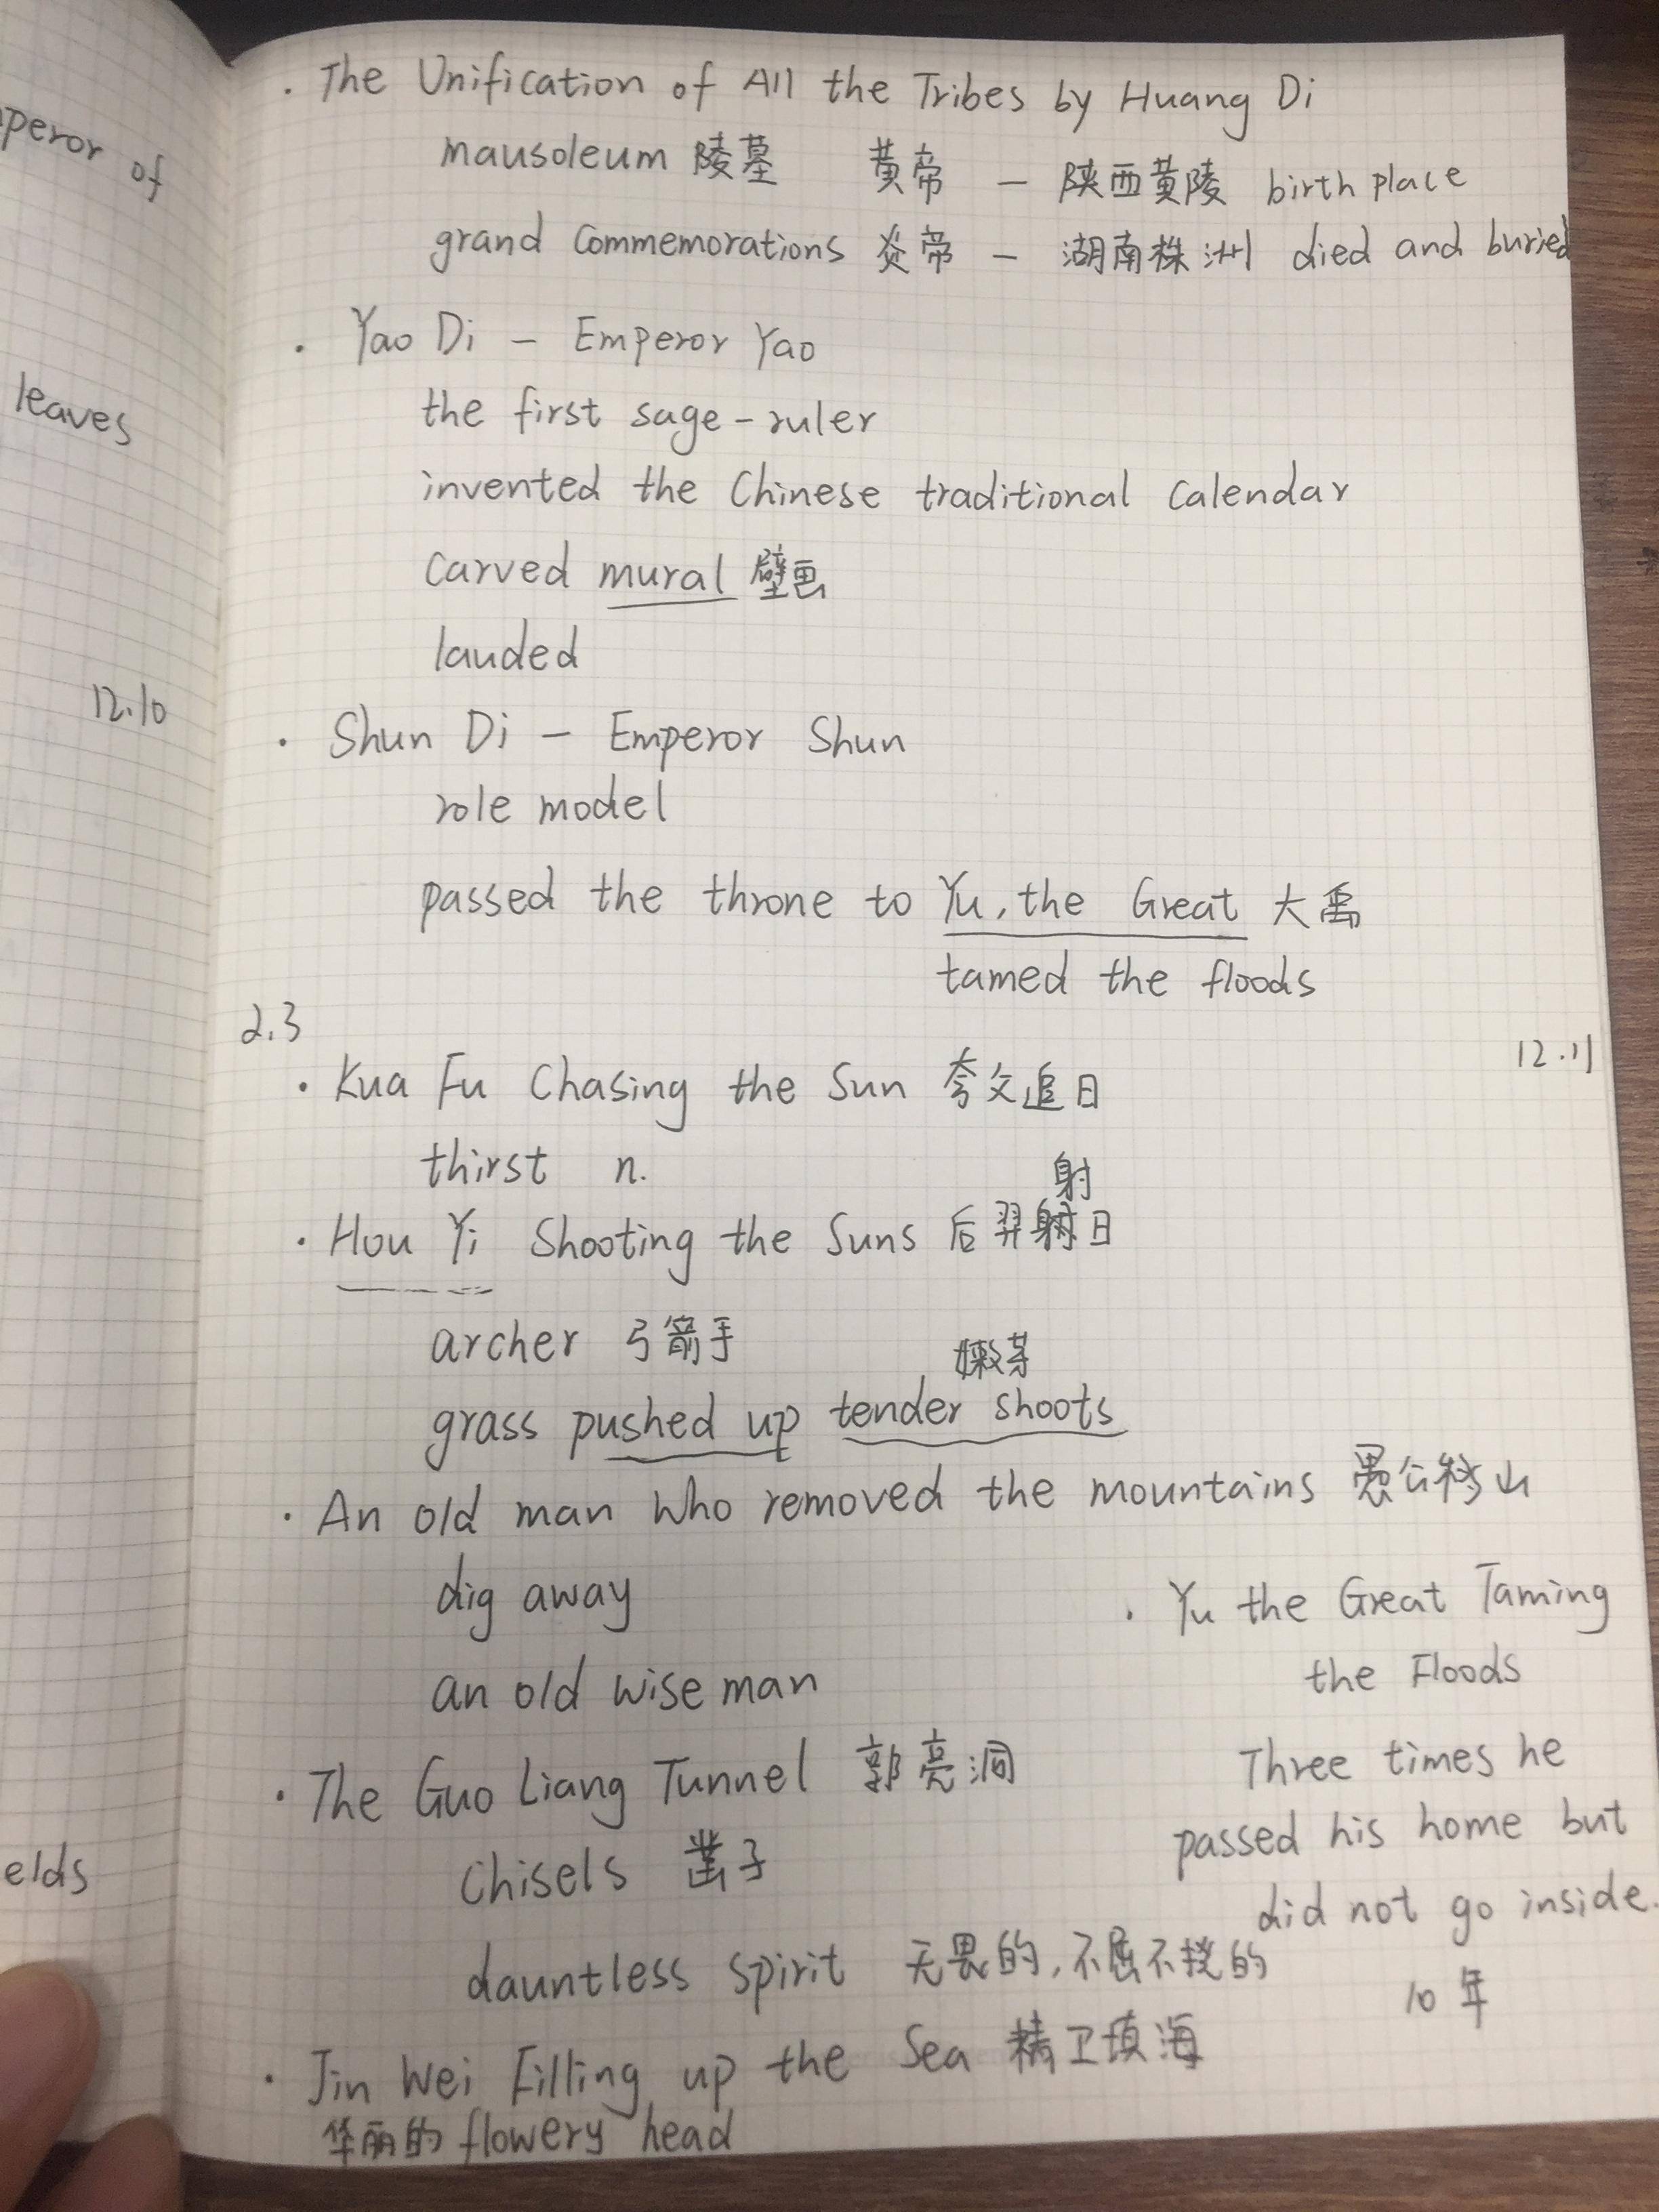 peror of
leaves
12.10
elds
· The Unification of All the Tribes by Huang Di
mausoleum 陵墓 黄帝 — 陕西黄陵 birth place
grand commemorations 炎帝 — 湖南株洲 died and buried
· Yao Di — Emperor Yao
the first sage-ruler
invented the Chinese traditional calendar
carved mural 壁画
lauded
· Shun Di — Emperor Shun
role model
passed the throne to Yu, the Great 大禹
tamed the floods
2.3
12.11
· Kua Fu Chasing the Sun 夸父追日
thirst n.
射
· Hou Yi Shooting the Suns 后羿射日
archer 弓箭手
嫩芽
grass pushed up tender shoots
· An old man who removed the mountains 愚公移山
dig away
an old wise man
· The Guo Liang Tunnel 郭亮洞
chisels 凿子
dauntless spirit 无畏的,不屈不挠的
· Jin Wei Filling up the Sea 精卫填海
华丽的 flowery head
· Yu the Great Taming
the Floods
Three times he
passed his home but
did not go inside.
10年